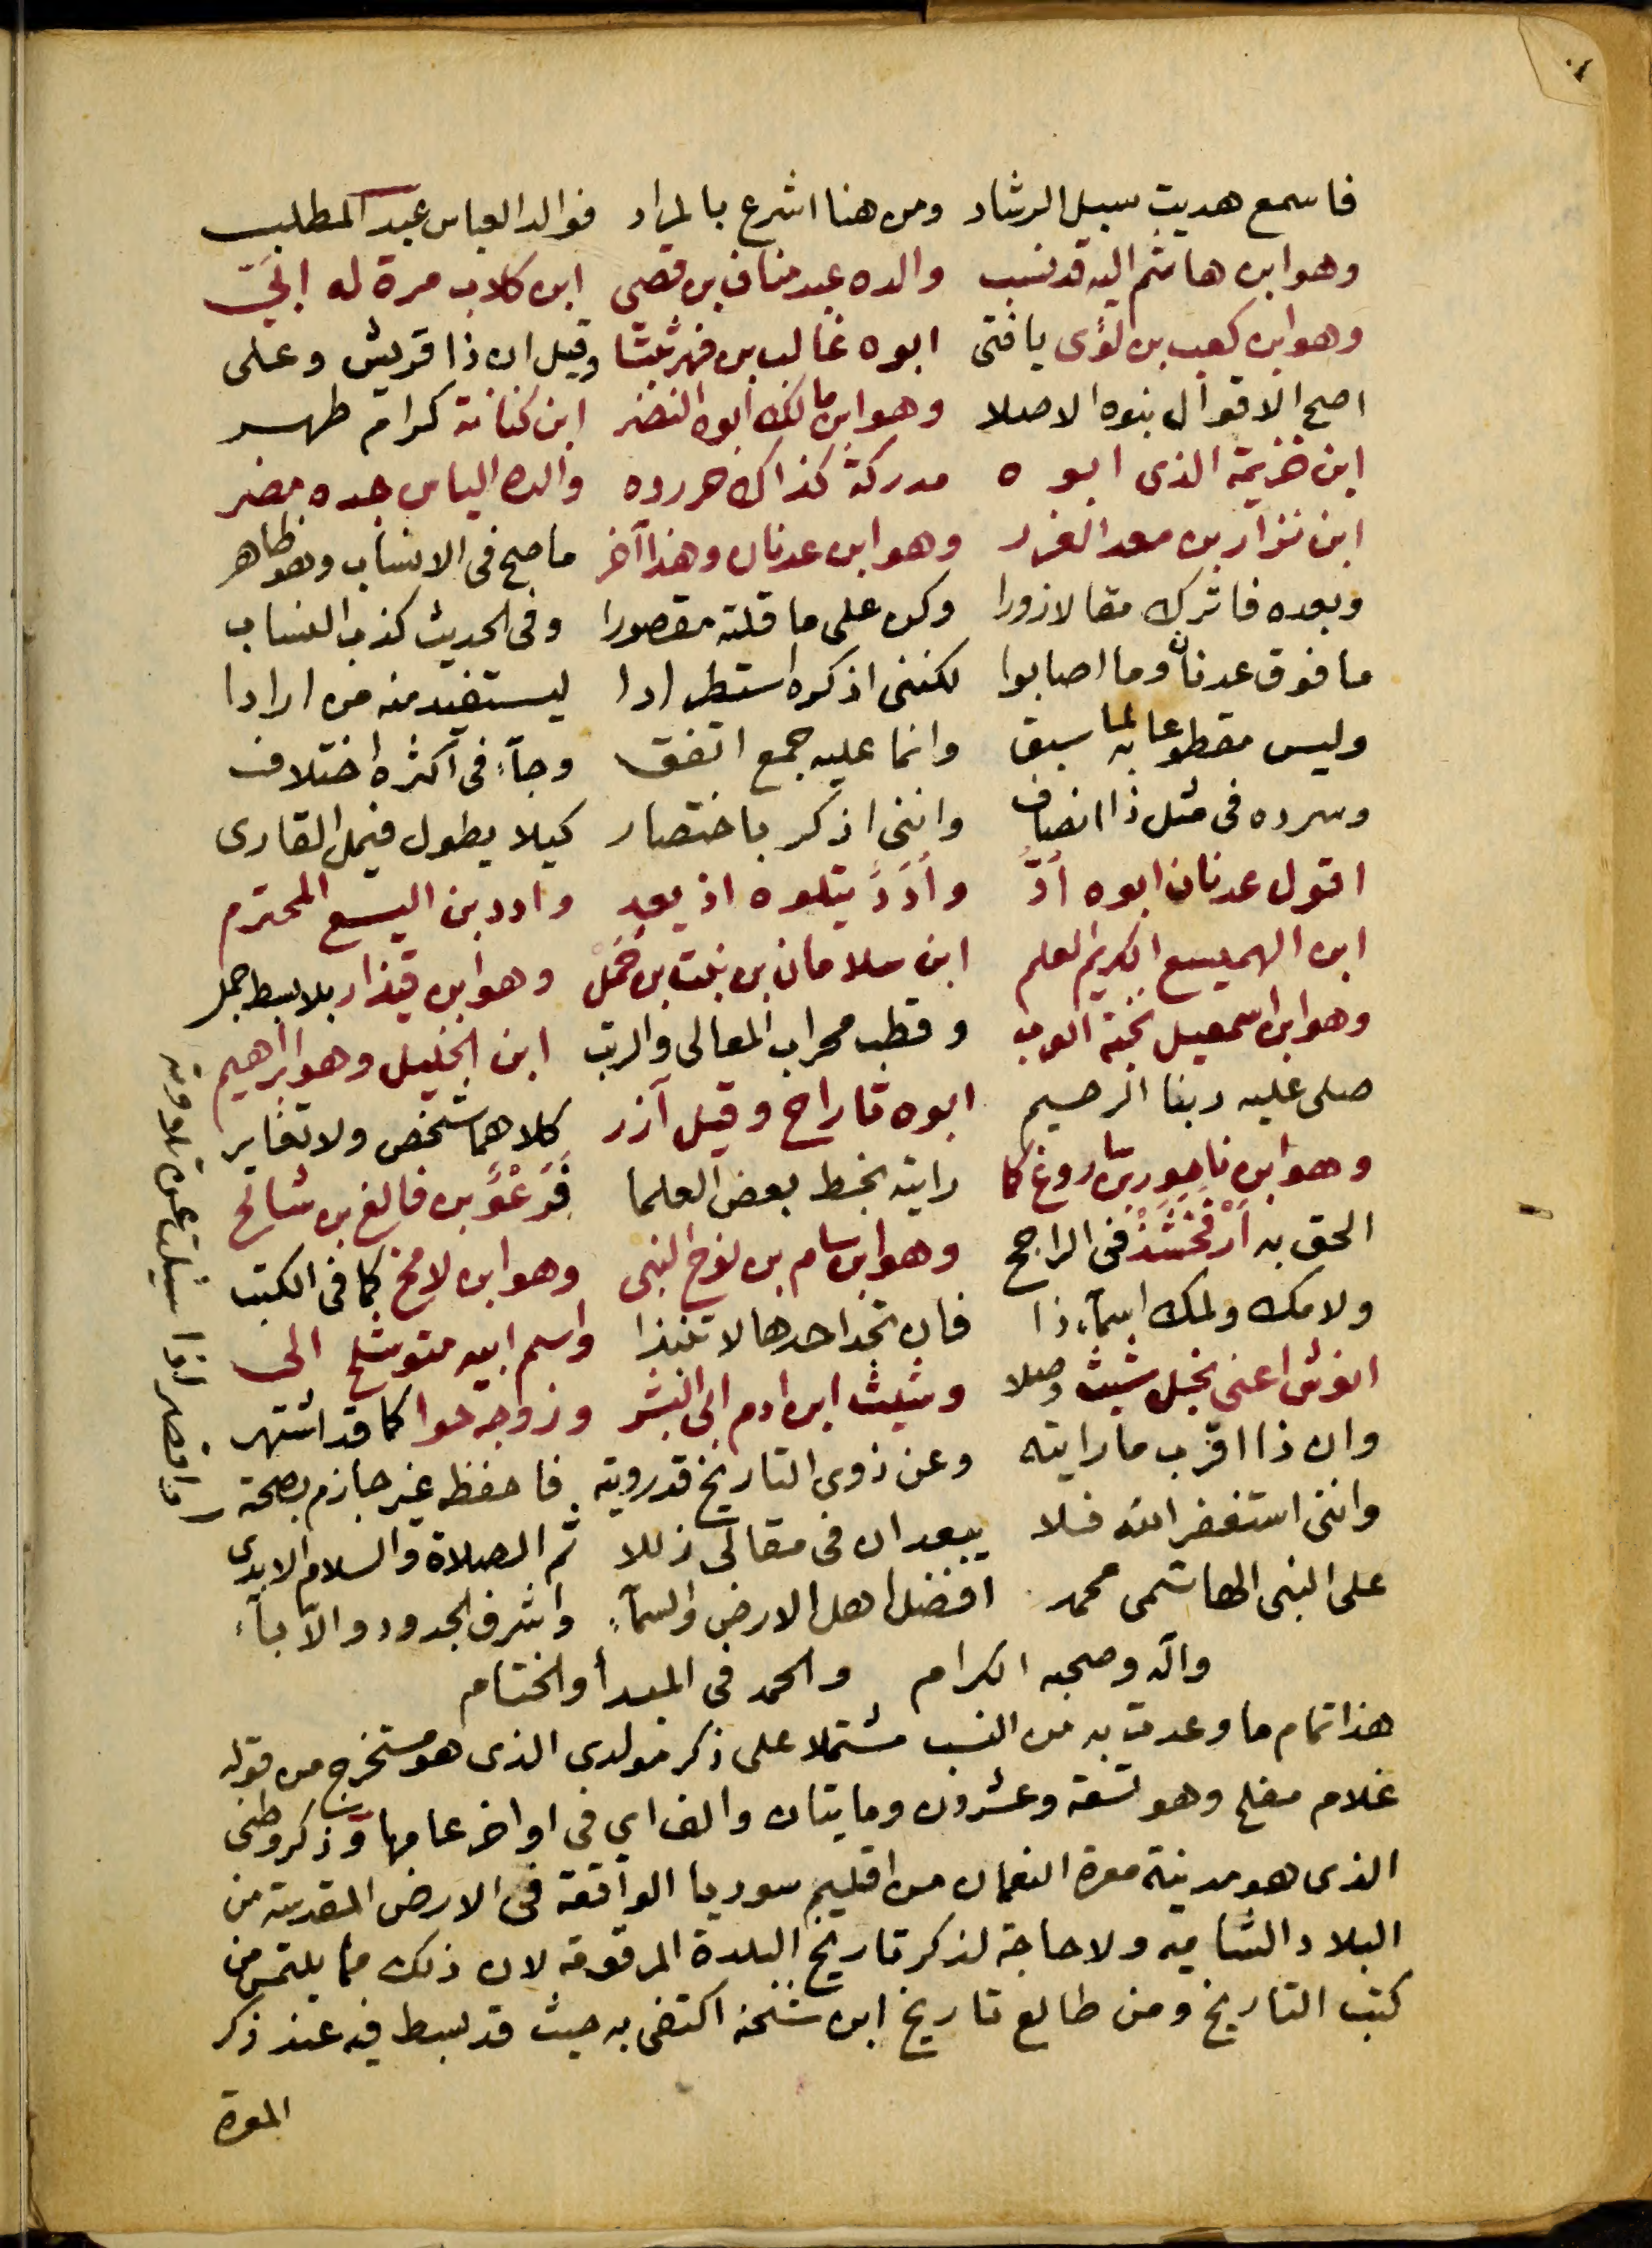 فاسمع هديت سبيل الرشاد ومن هنا اشرع بالمراد فوالد العباس عبد المطلب
وهو ابن هاشم اليه قد نسب والده عبد مناف بن قصي ابن كلاب مرة له ابي
وهو ابن كعب بن لؤى يا فتى ابوه غالب بن فهر ثبتا وقيل ان ذا قريش وعلى
اصح الاقوال بنوه الاصلا وهو ابن مالك ابوه النضر ابن كنانة كرام طهر
ابن خزيمة الذى ابوه مدركة كذاك حرروه والده الياس جده مضر
ابن نزار بن معد الغرر وهو ابن عدنان وهذا آخر ما صح فى الانساب وهو ظاهر
وبعده فاترك مقالا زورا وكن على ما قلته مقصورا وفى الحديث كذب النساب
ما فوق عدنان وما اصابوا لكننى اذكره استطرادا ليستفيد منه من ارادا
وليس مقطوعا به لما سبق وانما عليه جمع اتفق وجآء فى اكثره اختلاف
وسرده فى مثل ذا انصاف واننى اذكر باختصار كيلا يطول فيمل القارى
اقول عدنان ابوه أدّ وأدد يتلوه اذ يعد وادد بن اليسع المحترم
ابن الهميسع الكريم العلم ابن سلامان بن بنت بن حمل وهو ابن قيذار بلا بسط جمل
وهو ابن اسمعيل نخبة العرب وقطب محراب المعالى والرتب ابن الخليل وهو ابراهيم
صلى عليه ربنا الرحيم ابوه تاراح وقيل آزر كلاهما شخص ولا تغاير
وهو ابن ناحور بن ساروغ كما رايته بخط بعض العلما فرعو بن فالغ بن شالخ
الحق به ارفخشذ فى الراجح وهو ابن سام بن نوح النبى وهو ابن لامخ كما فى الكتب
ولامك ولمك اسمآء ذا فان تجد احدها لا تنبذا واسم ابيه متوشلخ الى
انوش اعنى نجل شيث وصلا وشيث ابن ادم ابى البشر وزوجه حوا كما قد اشتهر
وان ذا اقرب ما رايته وعن ذوى التاريخ قد رويته فاحفظه غير جازم بصحته
واقصر اذا سئلت عن تلاوته
واننى استغفر الله فلا يبعد ان فى مقالى زللا ثم الصلاة والسلام الابدى
على النبى الهاشمى محمد افضل اهل الارض والسمآء واشرف الجدود والآبآء
وآله وصحبه الكرام والحمد فى المبدأ والختام
هذا تمام ما وعدت به من النسب مشتملا على ذكر مولدى الذى هو مستخرج من قوله
غلام مفلح وهو تسعة وعشرون ومايتان والف اى فى اواخر عامها وذكر وطنى
الذى هو مدينة معرة النعمان من اقليم سوريا الواقعة فى الارض المقدسة من
البلاد الشاميه ولا حاجة لذكر تاريخ البلدة المرقومة لان ذلك مما يلتمس من
كتب التاريخ ومن طالع تاريخ ابن شحنه اكتفى به حيث قد بسط فيه عند ذكر
المعرة